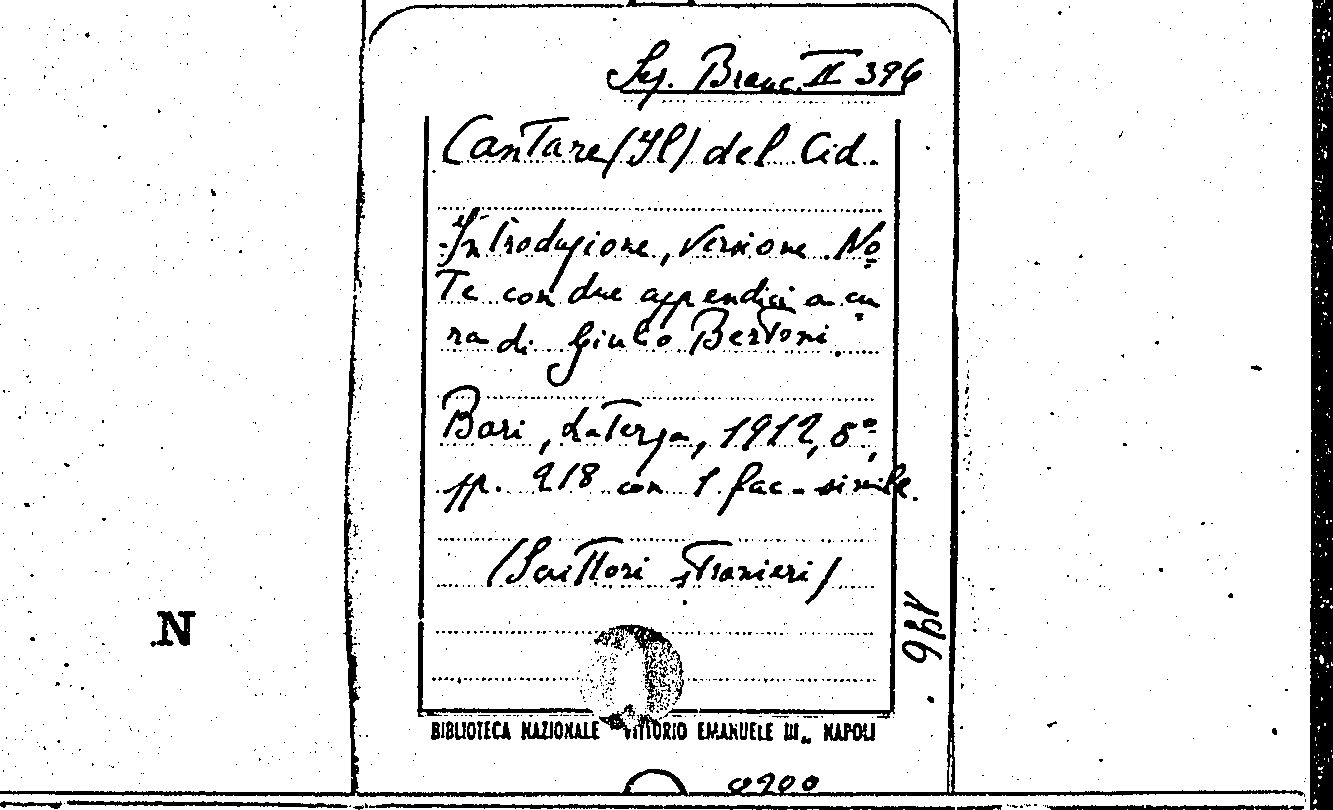 Sez. Branc. II 396
Cantare (Il) del Cid.
Introduzione, versione No
te con due appendici a cu
ra di Giulio Bertoni.
Bari, Laterza, 1912, 8º,
pp. 218 con 1 fac-simile.
(Scrittori stranieri)
N
BIBLIOTECA NAZIONALE VITTORIO EMANUELE III„ NAPOLI
0200